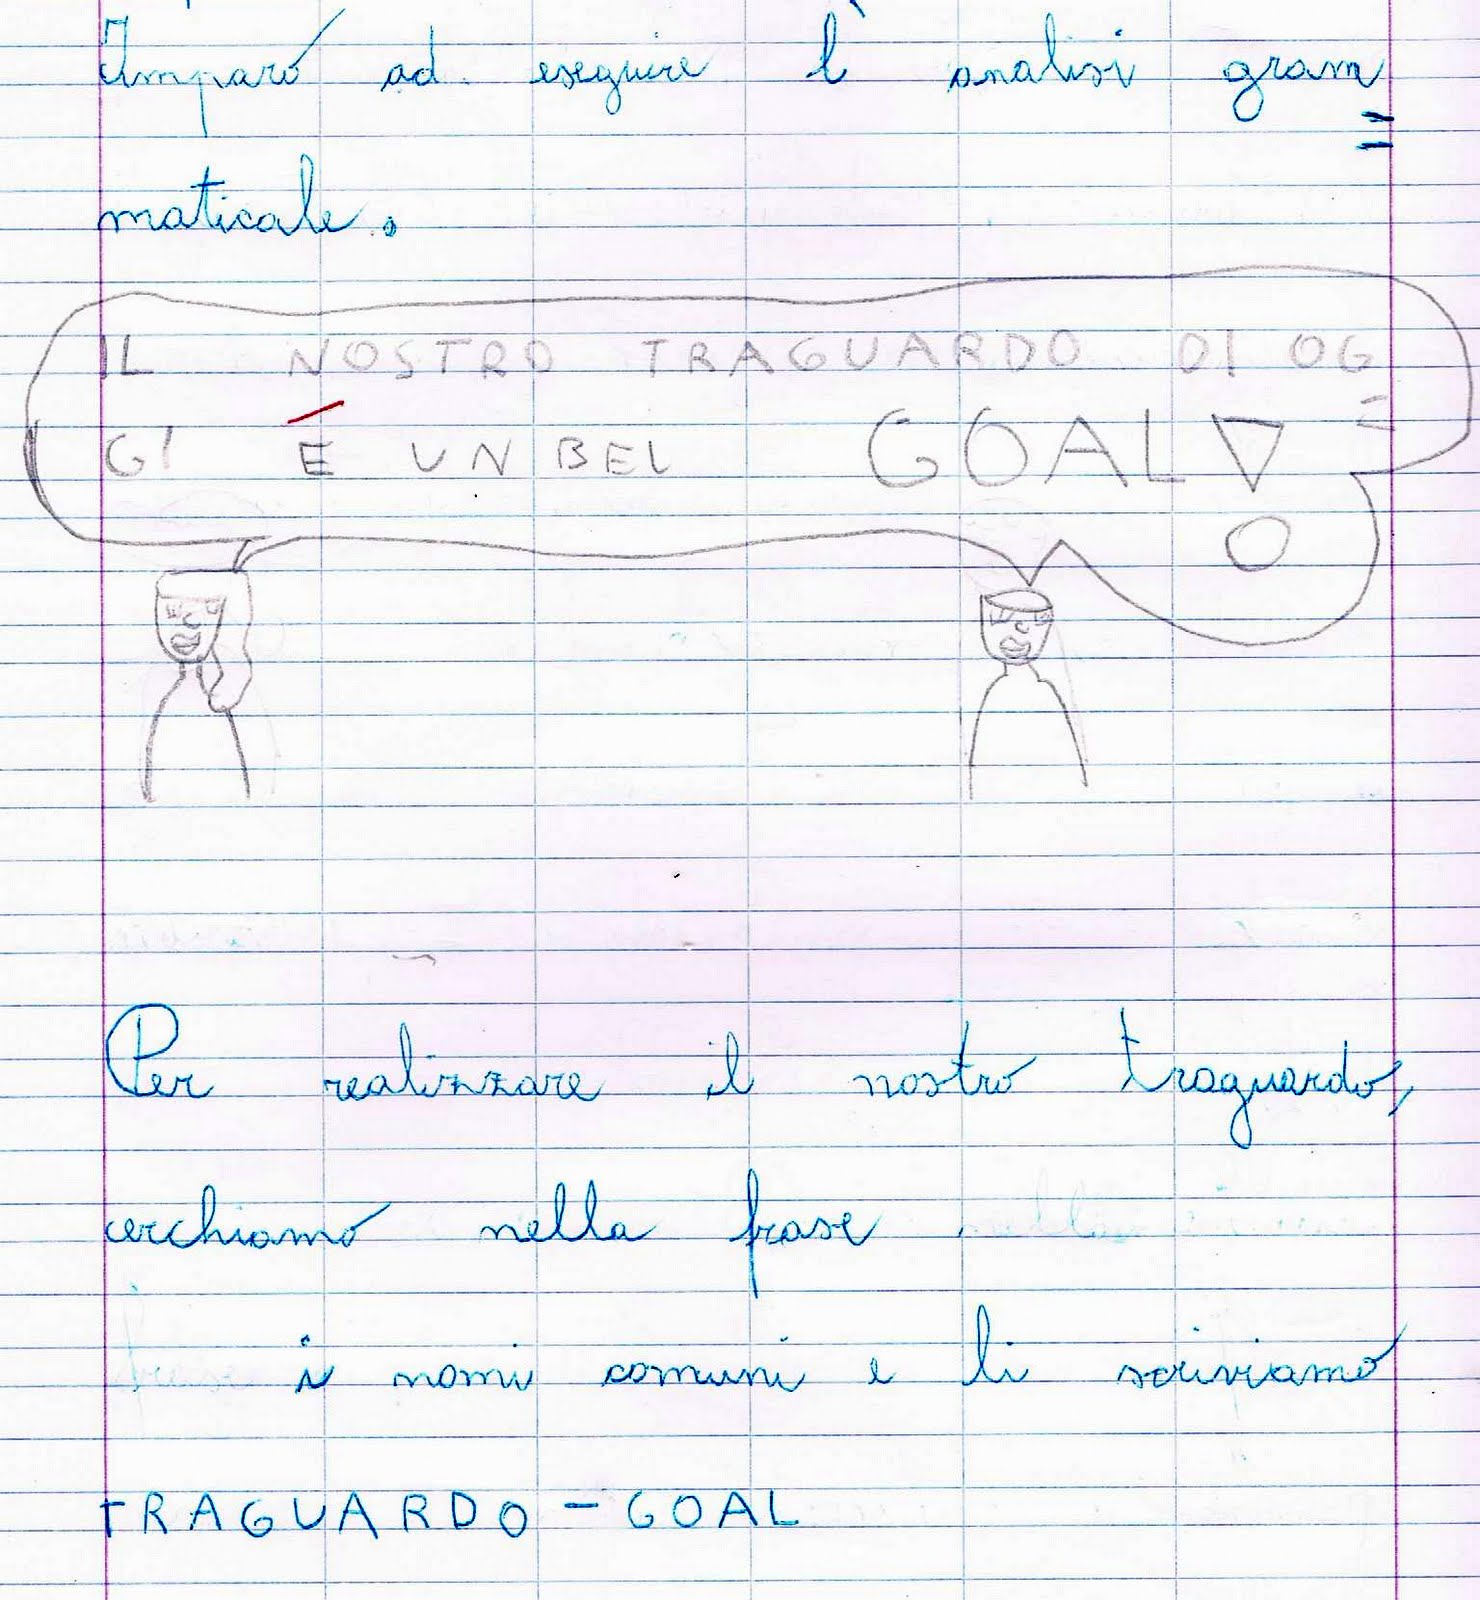 Imparo ad eseguire l'analisi gram=
maticale.
IL NOSTRO TRAGUARDO DI OG=
GI È UN BEL GOAL!
Per realizzare il nostro traguardo,
cerchiamo nella frase
i nomi comuni e li scriviamo
TRAGUARDO - GOAL